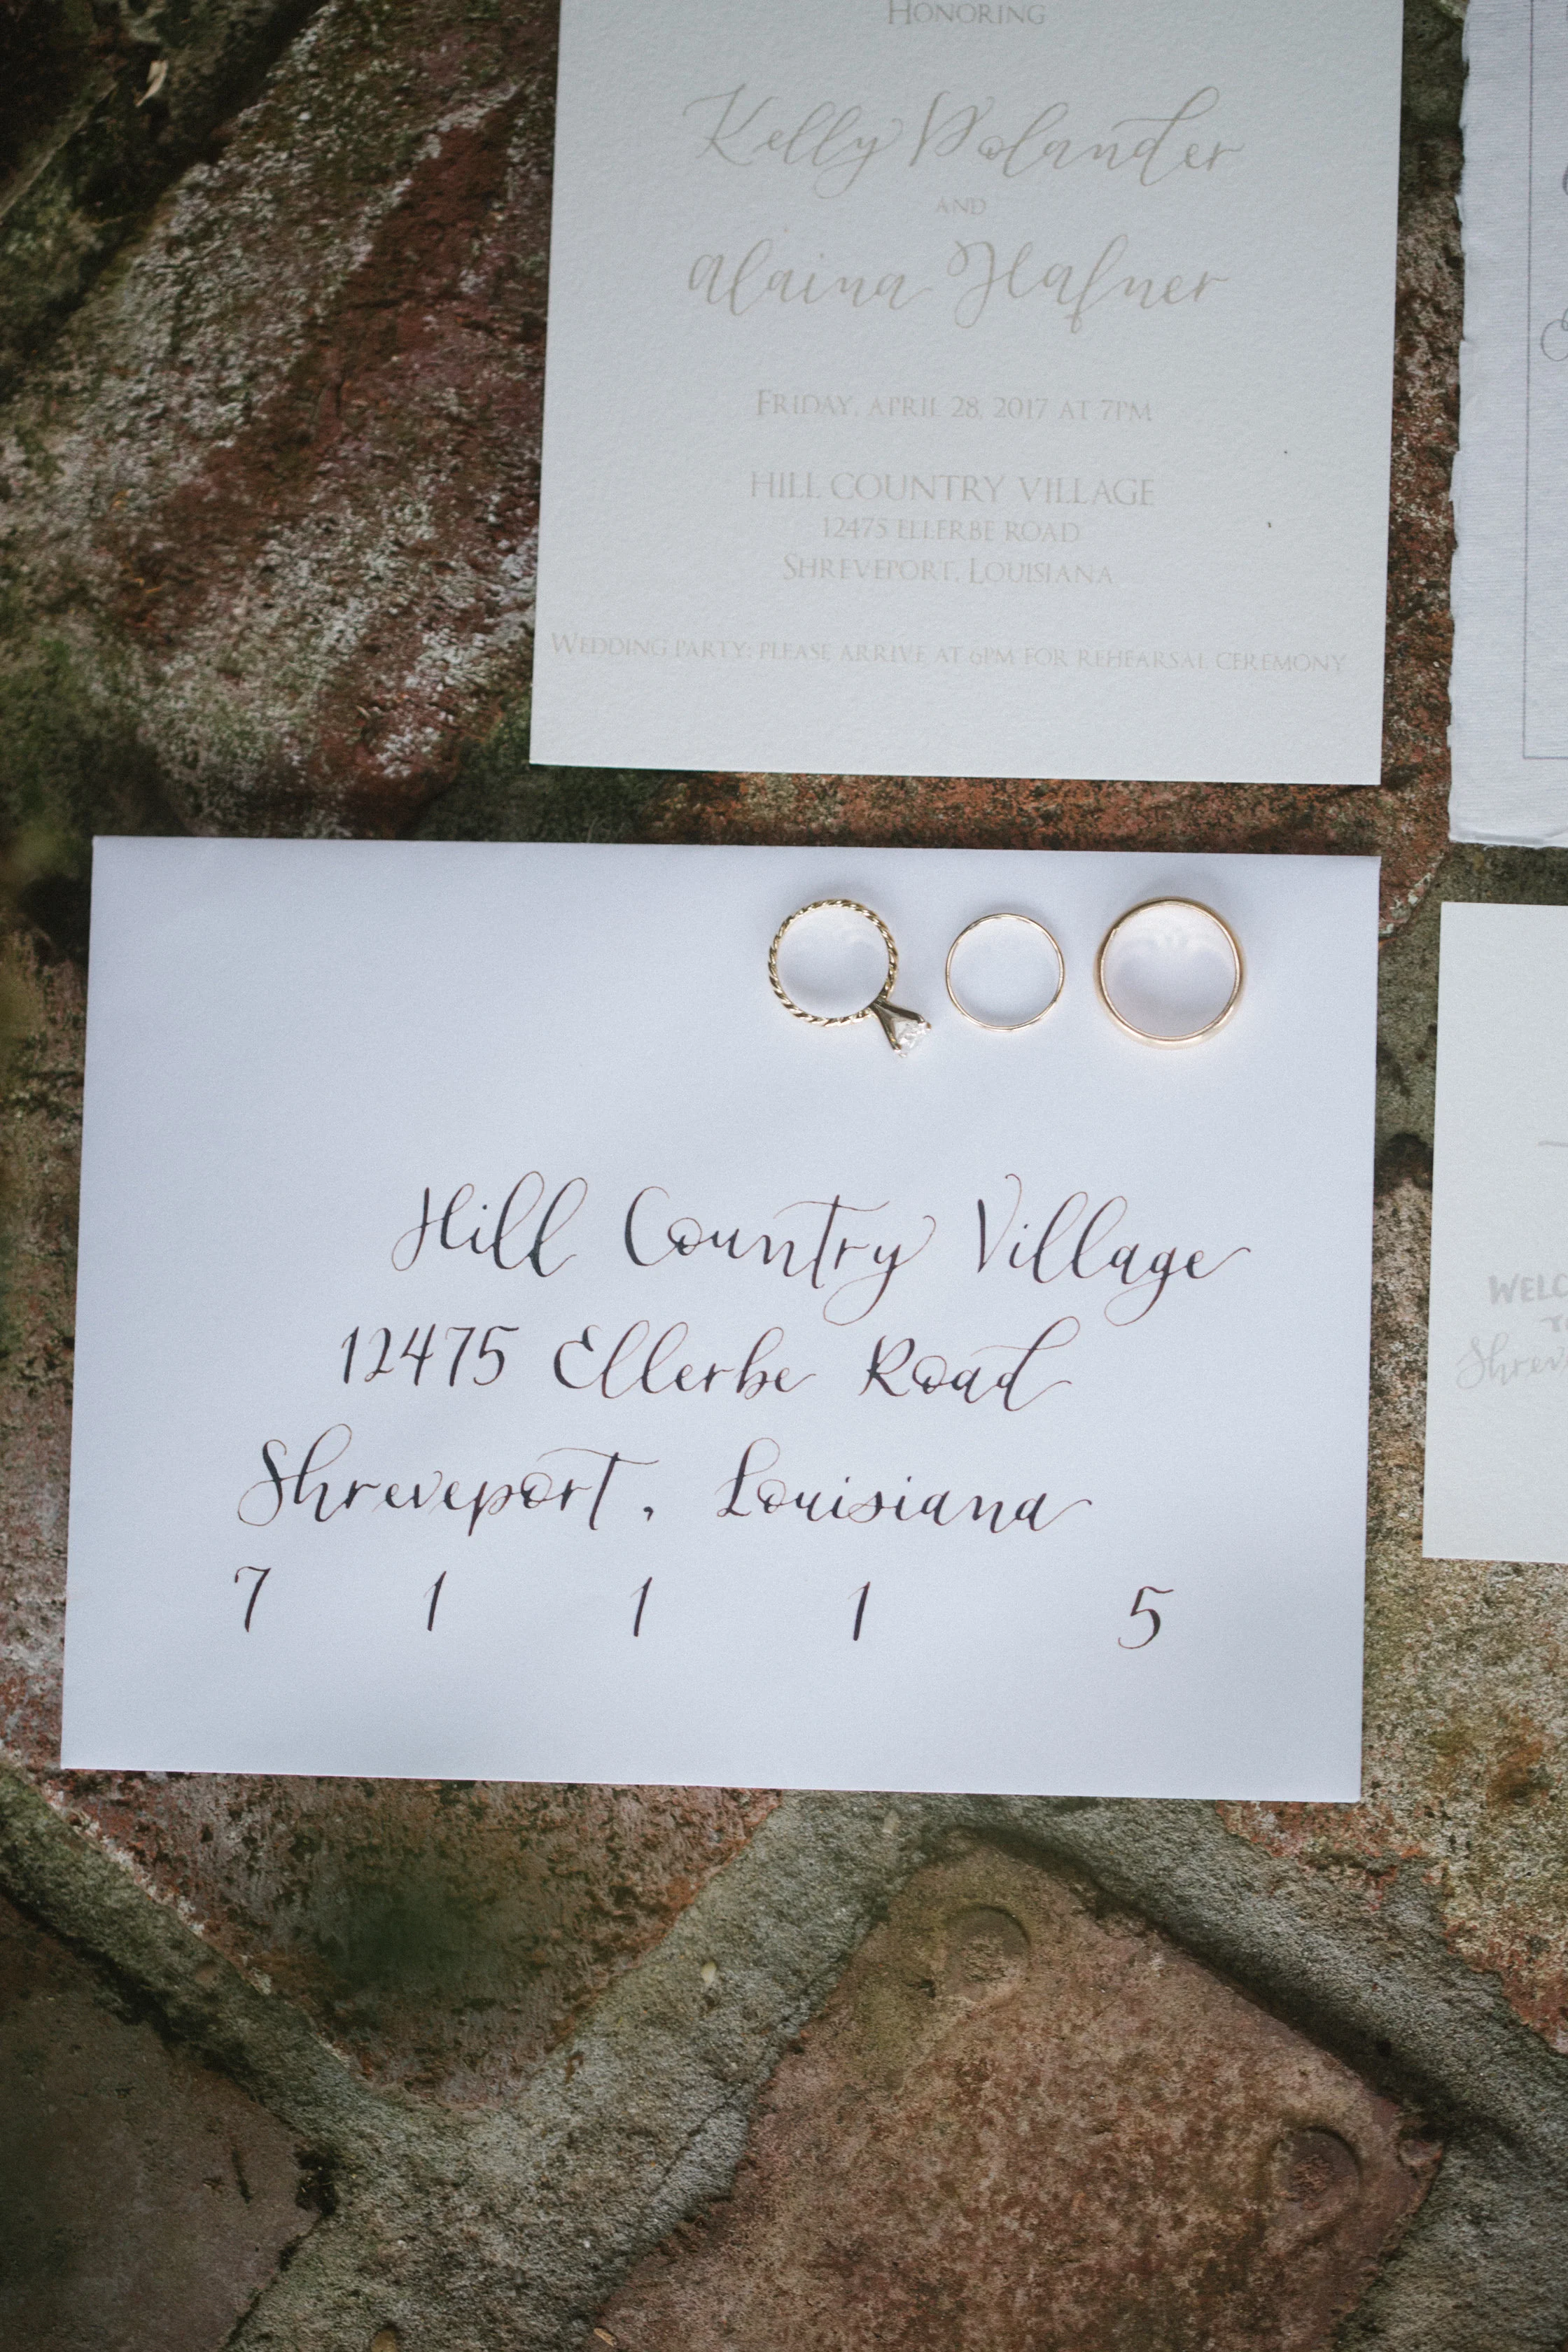 HONORING
Kelly Bolander
AND
Alaina Hafner
FRIDAY, APRIL 28, 2017 AT 7PM
HILL COUNTRY VILLAGE
12475 ELLERBE ROAD
SHREVEPORT, LOUISIANA
WEDDING PARTY: PLEASE ARRIVE AT 6PM FOR REHEARSAL CEREMONY
Hill Country Village
12475 Ellerbe Road
Shreveport, Louisiana
7 1 1 1 5